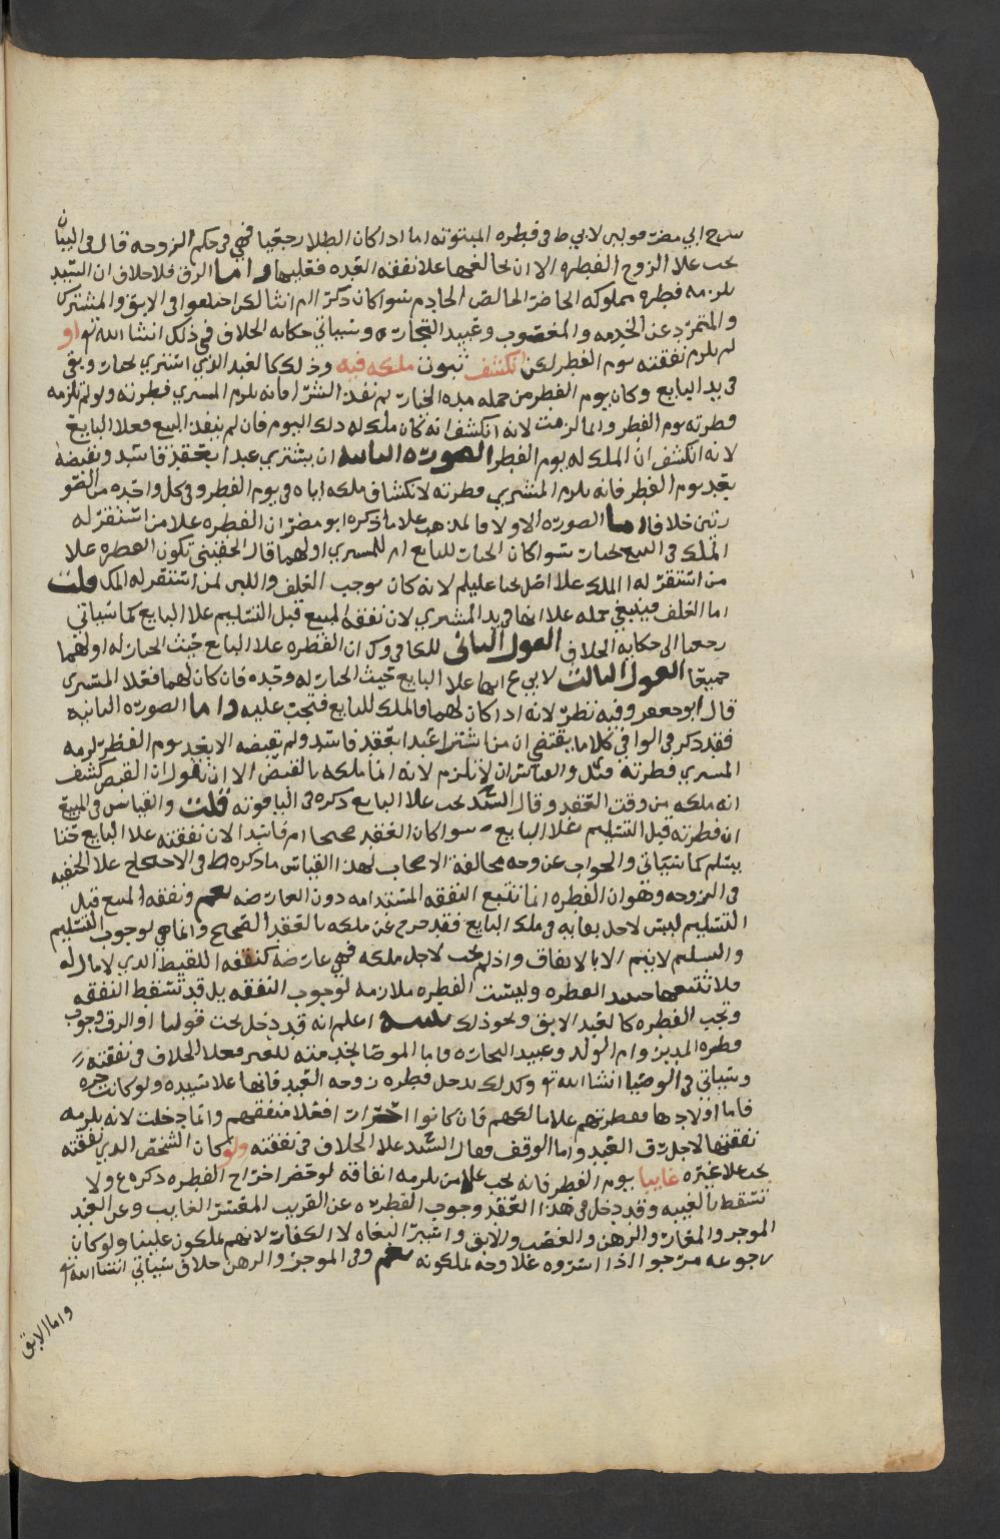 شرح ابي مضر قولين لابي ط في فطره المبتوته اما اذا كان الطلاق رجعيا فهي في حكم الزوجه قال في البيان
يجب علا الزوج الفطره الا ان يخالعها علا نفقه العده فعليها واما الرق فلا خلاف ان السيد
يلزمه فطره مملوكه الحاضر الخالص الخادم سوا كان ذكرا ام انثا لكن اختلفوا في الابق والمشترك
والمتمرد عن الخدمه والمغصوب وعبيد التجاره وسياتي حكايه الخلاف في ذلك انشا الله تع او
لم يلزم نفقته يوم الفطر لكن انكشف ثبوت ملكه فيه وذلك كالعبد الذي اشتري بخيار وبقي
في يد البايع وكان يوم الفطر من جمله مده الخيار ثم نفذ الشرا فانه يلزم المشتري فطرته ولو لم تلزمه
فطرته يوم الفطر وانما لزمت لانه انكشف انه كان ملك له ذلك اليوم فان لم ينفذ البيع فعلا البايع
لانه انكشف ان الملك له يوم الفطر الصوره الثانيه ان يشتري عبدا بعقد فاسد ويقبضه
بعد يوم الفطر فانه يلزم المشتري فطرته لانكشاف ملكه اياه في يوم الفطر وفي كل واحده من الصو
رتين خلاف اما الصوره الاولا فالمذهب علا ما ذكره ابو مضر ان الفطره علا من استقر له
الملك في البيع بخيار سوا كان الخيار للبايع ام للمشتري او لهما قال الحقيني تكون الفطره علا
من استقر له الملك علا اصل يحيا عليلم لانه كان يوجب العلف واللبن لمن استقر له الملك قلت
اما العلف فينبغي حمله علا انها في يد المشتري لان نفقه المبيع قبل التسليم علا البايع كما سياتي
رجعنا الى حكايه الخلاف القول الثاني للكافي وك ان الفطره علا البايع حيث الخيار له او لهما
جميعا القول الثالث لابي ع انها علا البايع حيث الخيار له وحده فان كان لهما فعلا المشتري
قال ابو جعفر وفيه نظر لانه اذا كان لهما فالملك للبايع فتجب عليه واما الصوره الثانيه
فقد ذكر في الوافي كلاما يقتضي ان من اشترا عبدا بعقد فاسد ولم يقبضه الا بعد يوم الفطر لزمه
المشتري فطرته قيل والقياس ان لا تلزم لانه انما ملكه بالقبض الا ان نقول ان القبض كشف
انه ملكه من وقت العقد وقال السيد تجب علا البايع ذكره في الياقوته قلت والقياس في المبيع
ان فطرته قبل التسليم علا البايع سوا كان العقد صحيحا ام فاسدا لان نفقته علا البايع حتا
يسلم كما سياتي والجواب عن وجه مخالفة الاصحاب لهذا القياس ما ذكره ط في الاحتجاج علا الحنفيه
في الزوجه وهو ان الفطره انما تتبع النفقه المستدامه دون العارضه نعم ونفقه المبيع قبل
التسليم ليس لاجل بقايه في ملك البايع فقد خرج عن ملكه بالعقد الصحيح وانما هي لوجوب التسليم
والتسليم لا يتم الا بالانفاق واذا لم تجب لاجل ملكه فهي عارضة كنفقه اللقيط الذي لا مال له
فلا تتبعها حينئذ الفطره وليست الفطره ملازمه لوجوب النفقه بل قد تسقط النفقه
وتجب الفطره كالعبد الابق ونحو ذلك تنبيه اعلم انه قد دخل تحت قولنا او الرق وجوب
فطره المدبر وام الولد وعبيد التجاره فاما الموصا بخدمته للغير فعلا الخلاف في نفقته
وسياتي في الوصايا انشا الله تع وكذلك يدخل فطره زوجه العبد فانها علا سيده ولو كانت حره
فاما اولادها ففطرتهم علا مالكهم فان كانوا احرارا فعلا منفقهم وانما دخلت لانه يلزمه
نفقتها لاجل رق العبد واما الوقف فقال السيد علا الخلاف في نفقته ولو كان الشخص الذي نفقته
تجب علا غيره غايبا يوم الفطر فانه يجب علا من يلزمه انفاقه لو حضر اخراج الفطره ذكره ع ولا
تسقط بالغيبه وقد دخل في هذا العقد وجوب الفطره عن القريب المعسر الغايب وعن العبد
الموجر والمعار والرهن والغصب والابق واسير البغاه لا الكفار لانهم يملكون علينا ولو كان
رجوعه مرجوا اذا اسروه علا وجه يملكونه نعم وفي الموجر والرهن خلاف سياتي انشا الله تع
واما الابق